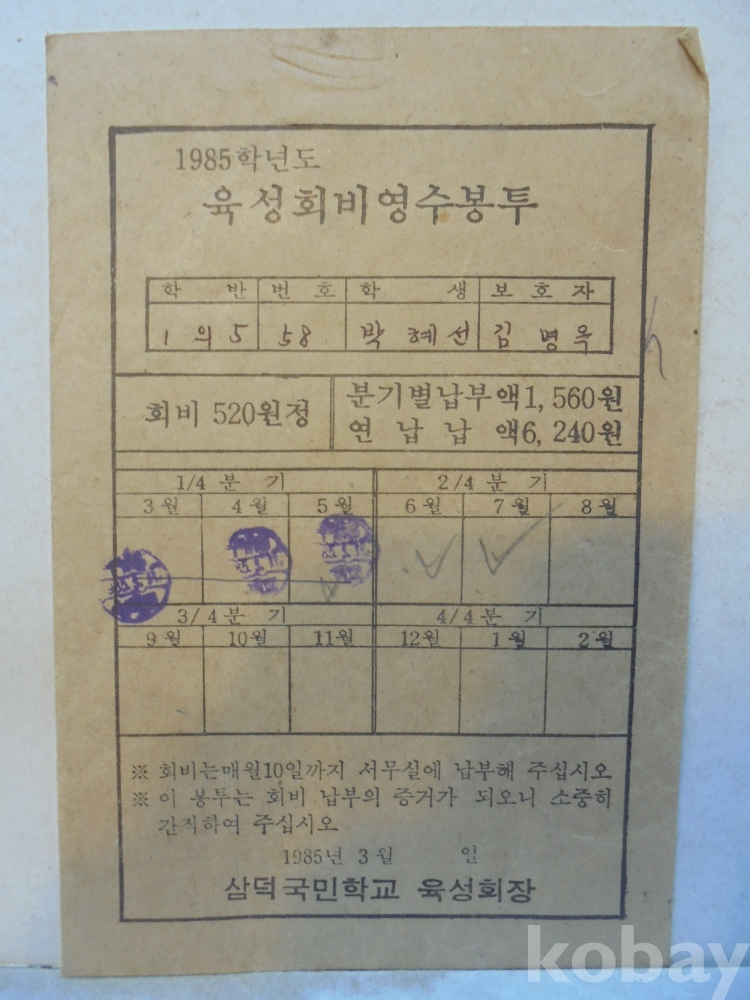 1985학년도
육성회비영수봉투
학 반 번 호 학 생 보 호 자
1의5 58 박혜선 김명옥
회비 520원정
분기별납부액1,560원
연 납 납 액6,240원
1/4 분 기 2/4 분 기
3월 4월 5월 6월 7월 8월
3/4 분 기 4/4 분 기
9월 10월 11월 12월 1월 2월
※ 회비는매월10일까지 서무실에 납부해 주십시오
※ 이 봉투는 회비 납부의 증거가 되오니 소중히
간직하여 주십시오
1985년 3월 일
삼덕국민학교 육성회장
kobay